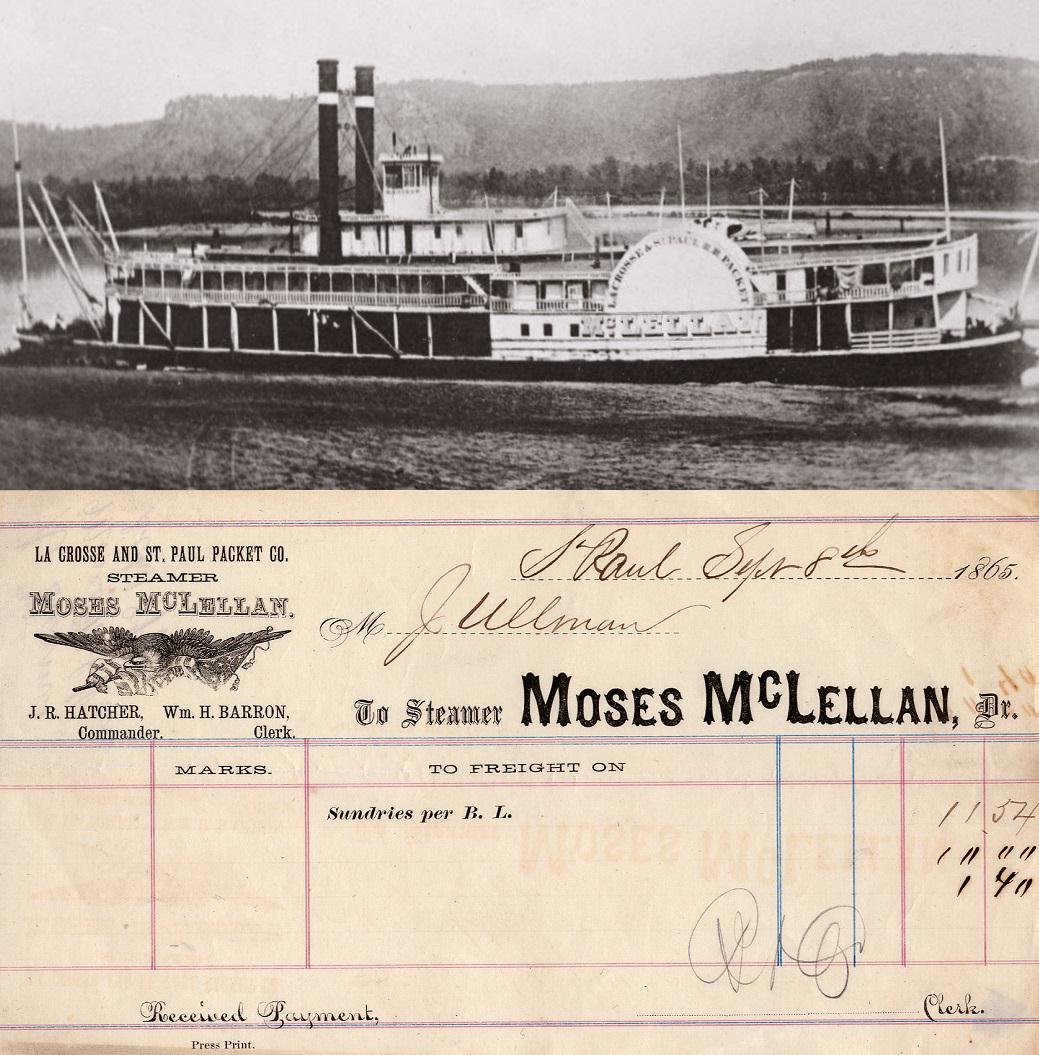 LA CROSSE & ST. PAUL R.R. PACKET
McLELLAN
LA CROSSE AND ST. PAUL PACKET CO.
STEAMER
MOSES McLELLAN.
J. R. HATCHER, Wm. H. BARRON,
Commander. Clerk.
St Paul Sept 8th 1865.
M J Ullman
To Steamer MOSES McLELLAN, Dr.
MARKS. TO FREIGHT ON
Sundries per B. L. 11 54
1 40
Received Payment, Clerk.
Press Print.